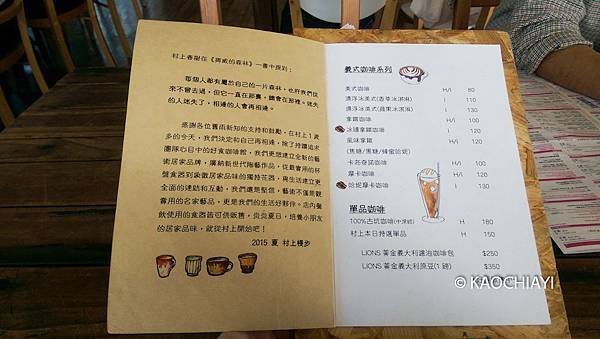 村上春樹在《挪威的森林》一書中提到:
每個人都有屬於自己的一片森林,也許我們從
來不曾去過,但它一直在那裏,總會在那裡。迷失
的人迷失了,相逢的人會再相逢。
感謝各位舊雨新知的支持和鼓勵,在村上1歲
多的今天,我們決定和自己再相逢,除了持續追求
團隊心目中的好食咖啡館,我們更想建立全新的藝
術居家品牌,廣納新世代陶藝作品,從最實用的杯
盤食器到染徹居家品味的獨特花器,與生活建立更
全面的連結和互動,我們還是堅信,藝術不僅是觀
賞用的名家藝品,更是我們的生活好夥伴。店內餐
飲使用的食器皆可供販售,炎炎夏日,培養小朋友
的居家品味,就從村上開始吧!
2015 夏 村上樓步
義式咖啡系列
美式咖啡 H/I 80
漂浮冰美式(香草冰淇淋) I 110
漂浮冰美式(蘋果冰淇淋) I 130
拿鐵咖啡 H/I 100
冰磚拿鐵咖啡 I 120
風味拿鐵 H/I 120
(焦糖/黑糖/蜂蜜哈妮)
卡布奇諾咖啡 H/I 100
摩卡咖啡 H/I 120
哈妮摩卡咖啡 I 130
單品咖啡
100%古坑咖啡(中深焙) H 180
村上本日特選單品 H 150
LIONS 著金義大利濾泡咖啡包 $250
LIONS 著金義大利原豆(1磅) $350
© KAOCHIAYI